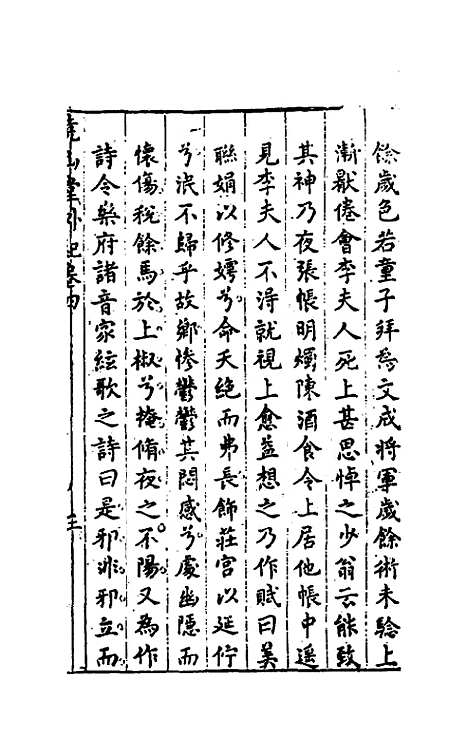 餘歲色若童子拜爲文成將軍歲餘術未驗上
漸厭倦會李夫人死上甚思悼之少翁云能致
其神乃夜張帳明燭陳酒食令上居他帳中遥
見李夫人不得就視上愈益想之乃作賦曰美
聯娟以修嫮兮命夭絶而弗長飾莊宫以延佇
兮泯不歸乎故鄉慘鬱鬱其悶感兮處幽隱而
懷傷稅餘馬於上椒兮掩脩夜之不陽又為作
詩令樂府諸音家絃歌之詩曰是邪非邪立而
堯山堂外紀卷四
三